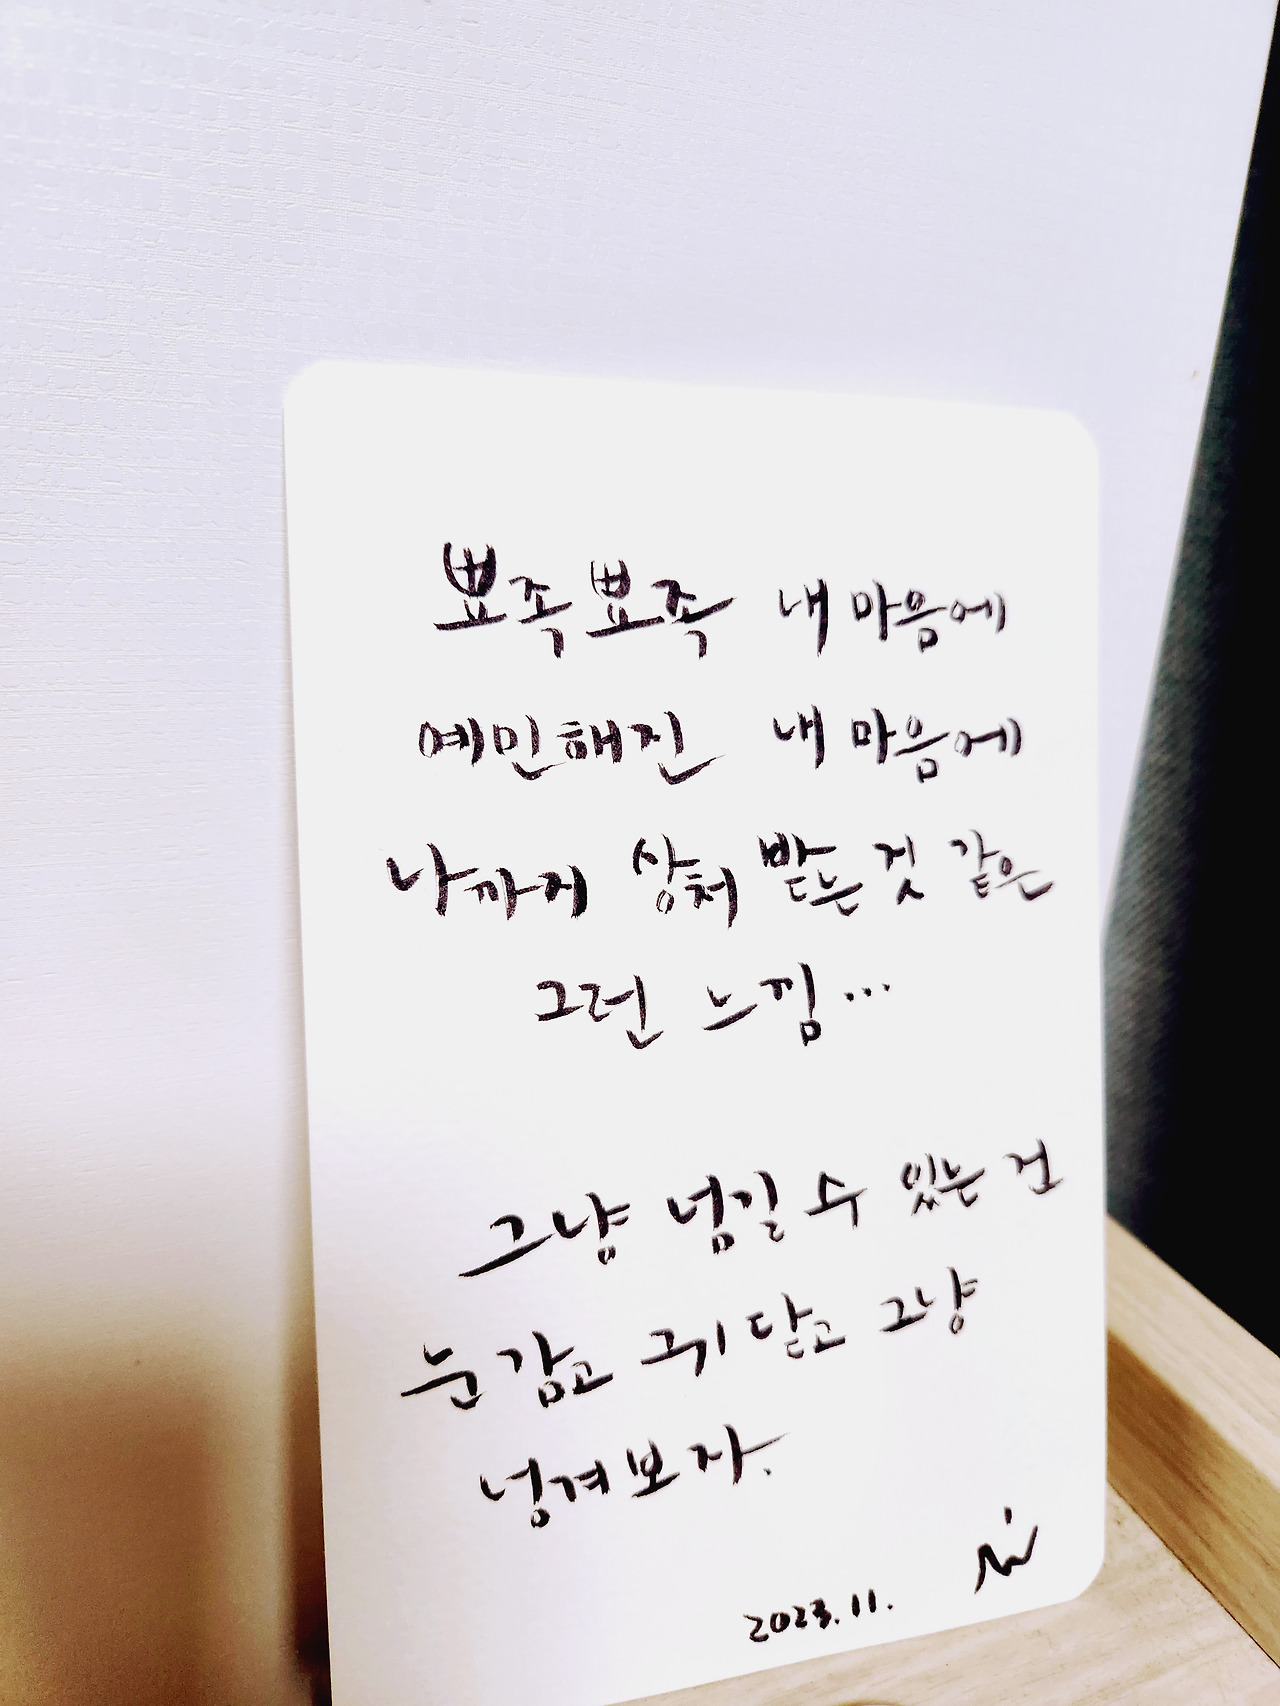 뾰족뾰족 내 마음에
예민해진 내 마음에
나까지 상처 받는 것 같은
그런 느낌...
그냥 넘길 수 있는 건
눈 감고 귀 닫고 그냥
넘겨보자.
2023.11.